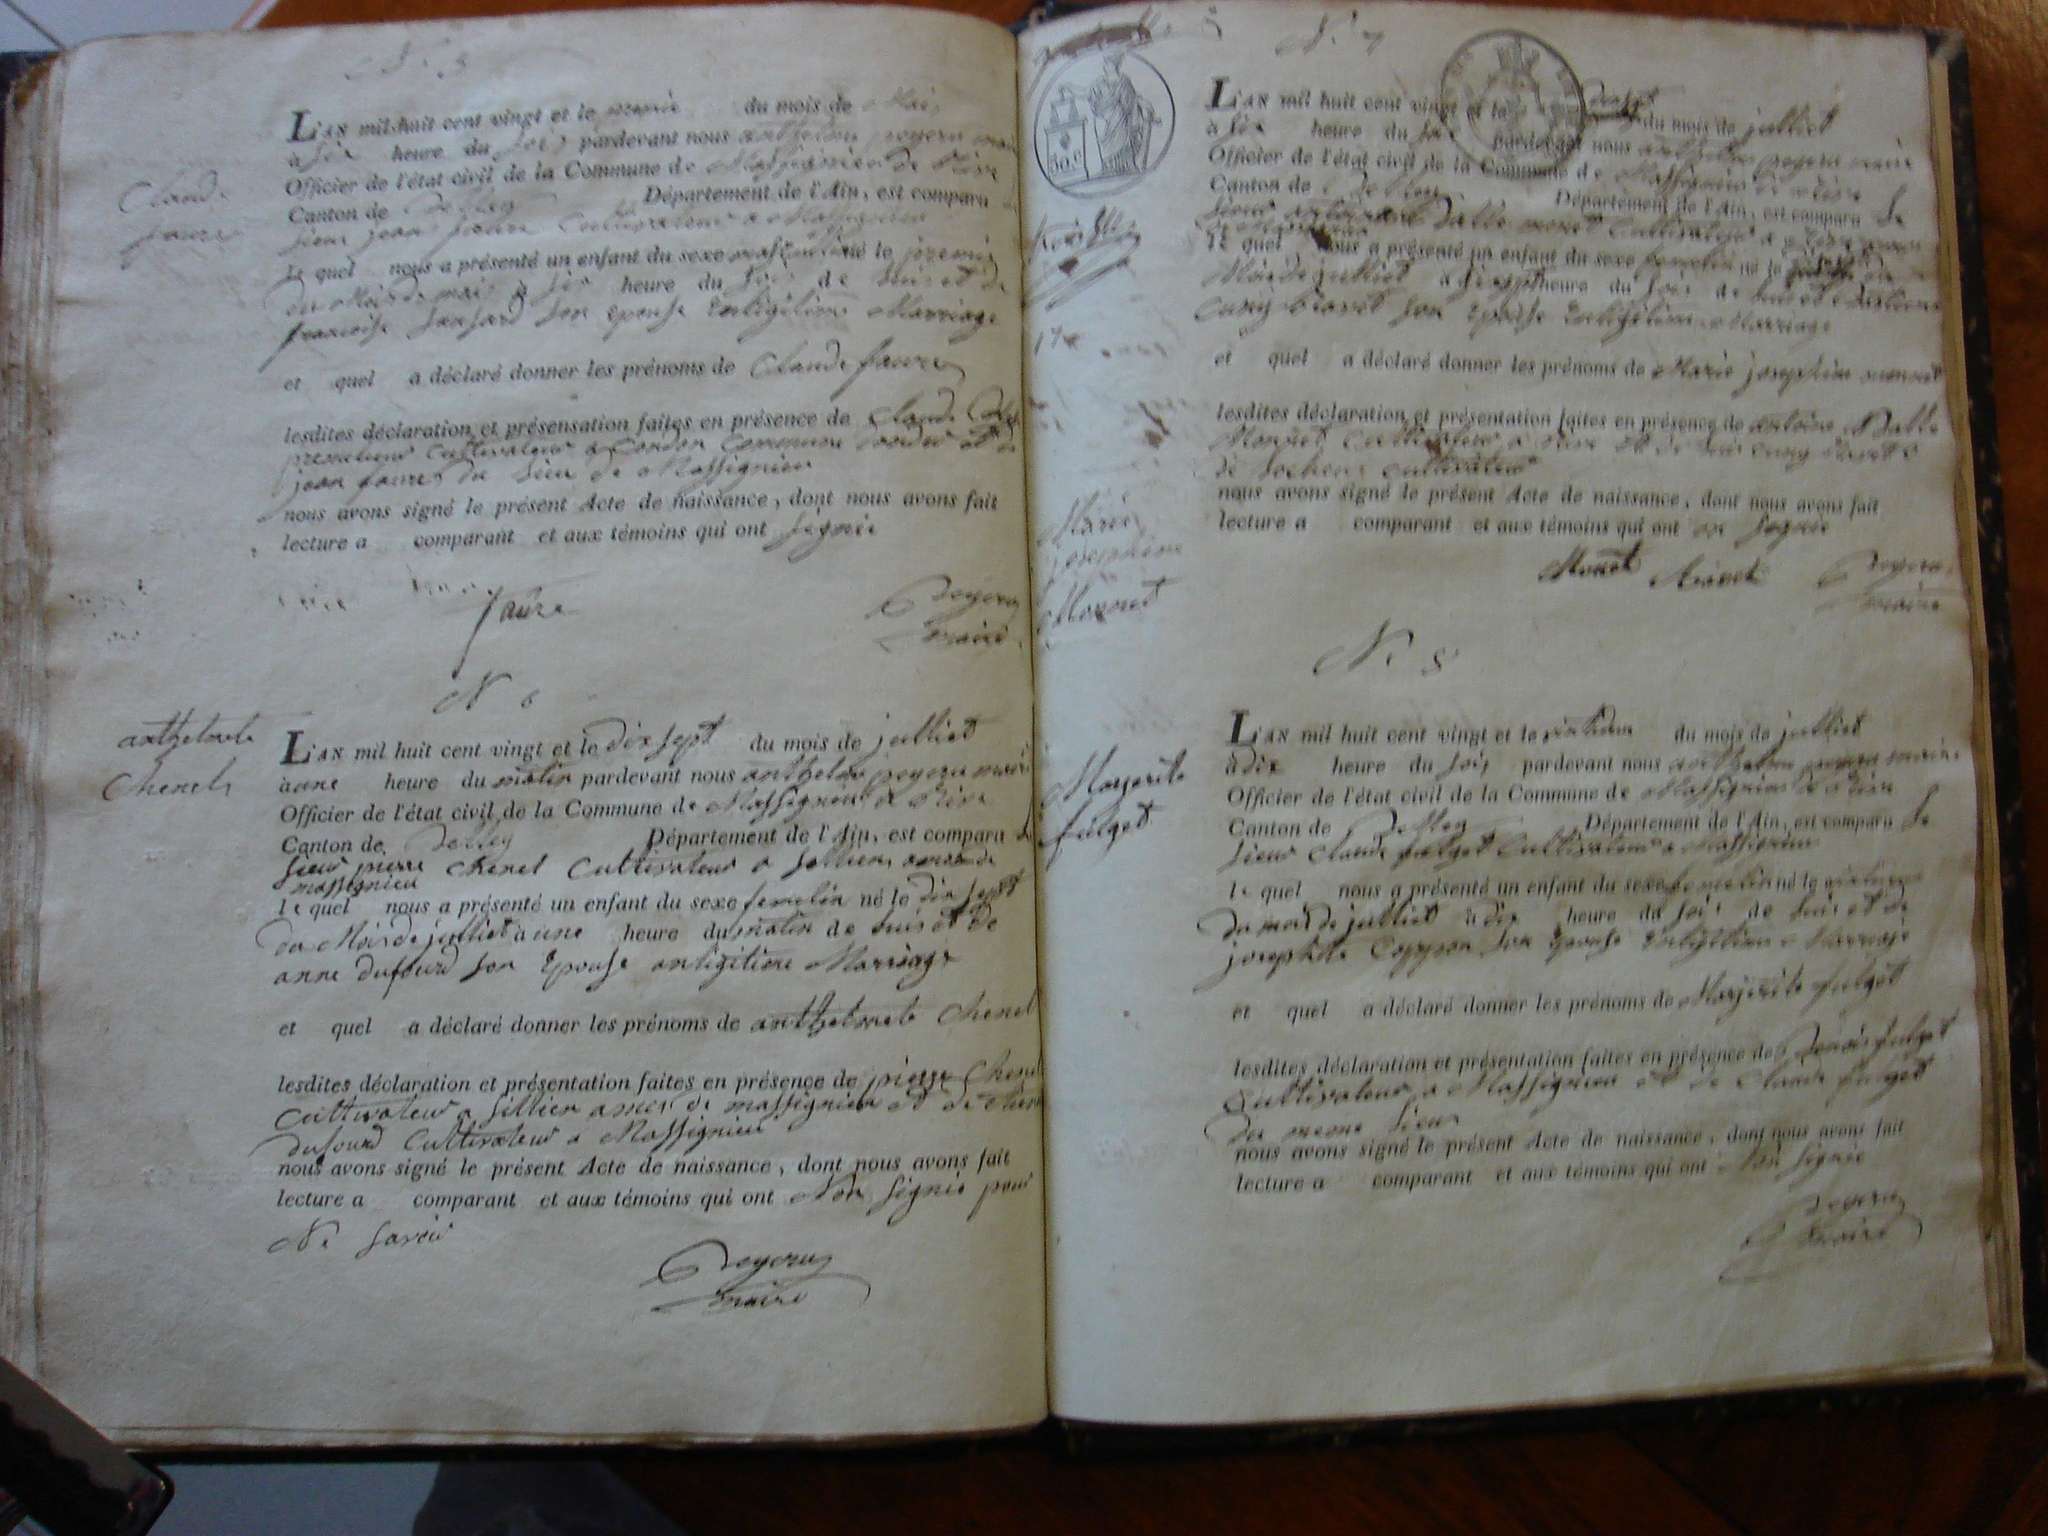 N. 5
Claude
faure
L'AN mil huit cent vingt et le premie du mois de Mai,
à six heure du soir pardevant nous anthelme peyeru maire
Officier de l'état civil de la Commune de Massignieu de Rive
Canton de Belley Département de l'Ain, est comparu
sieur jean faure Cultivateur a Massignieu
le quel nous a présenté un enfant du sexe masculin né le premie
du Mois de mai à six heure du soir de lui et de
francoise son epouse en legitime Marriage
et quel a déclaré donner les prénoms de Claude faure
lesdites déclaration et présensation faites en présence de Claude
Cultivateur a Condon Commune et de
jean faure du lieu de Massignieu
nous avons signé le présent Acte de naissance, dont nous avons fait
lecture a comparant et aux témoins qui ont signée
faure
peyeru
maire
N 6
anthelmete
Chenel
L'AN mil huit cent vingt et le dix sept du mois de julliet
à une heure du matin pardevant nous anthelme peyeru maire
Officier de l'état civil de la Commune de Massignieu de Rive
Canton de Belley Département de l'Ain, est comparu le
sieur pierre Chenel Cultivateur a sillien
massignieu
le quel nous a présenté un enfant du sexe femelin né le dix sept
du Mois de julliet à une heure du matin de luis et de
anne dufourd son Epouse an ligitime Marriage
et quel a déclaré donner les prénoms de anthelmete Chenel
lesdites déclaration et présentation faites en présence de pierre Chenel
Cultivateur a sillien de massignieu et de
dufourd Cultivateur a Massignieu
nous avons signé le présent Acte de naissance, dont nous avons fait
lecture a comparant et aux témoins qui ont Non signée pour
Ne savoir
peyeru
maire
N. 7
50.c
Marie
josephine
Monnet
L'AN mil huit cent vingt et le du mois de julliet
à six heure du soir pardevant nous anthelme peyeru maire
Officier de l'état civil de la Commune de Massignieu de Rive
Canton de Belley Département de l'Ain, est comparu le
sieur Cultivateur a
le quel nous a présenté un enfant du sexe femelin né le
Mois de julliet à heure du soir de luis et
son Epouse en legitime Marriage
et quel a déclaré donner les prénoms de Marie josephine monnet
lesdites déclaration et présentation faites en présence de antoine
Monnet Cultivateur a et de
de cultivateur
nous avons signé le présent Acte de naissance, dont nous avons fait
lecture a comparant et aux témoins qui ont signée
Monet
peyeru
maire
N. 8
Marjerite
fulget
L'AN mil huit cent vingt et le du mois de julliet
à dix heure du soir pardevant nous anthelme peyeru maire
Officier de l'état civil de la Commune de Massignieu de Rive
Canton de Belley Département de l'Ain, est comparu le
sieur Claude fulget Cultivateur a Massignieu
le quel nous a présenté un enfant du sexe femelin né le
du mois de julliet à dix heure du soir de luis et de
josephte son Epouse en legitime Marriage
et quel a déclaré donner les prénoms de Marjerite fulget
lesdites déclaration et présentation faites en présence de fulget
Cultivateur a Massignieu et de Claude fulget
du meme lieu
nous avons signé le présent Acte de naissance, dont nous avons fait
lecture a comparant et aux témoins qui ont Non signée
peyeru
maire